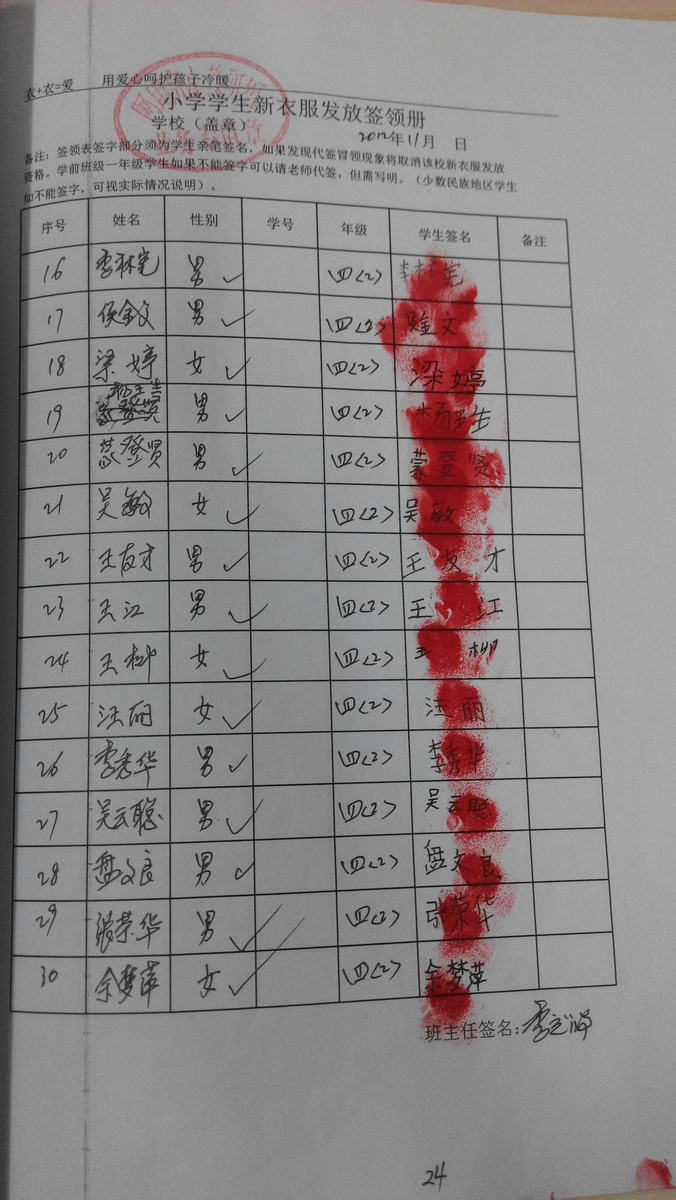 衣+衣=爱 用爱心呵护孩子冷暖
小学学生新衣服发放签领册
学校（盖章） 2012年11月 日
备注：签领表签字部分须为学生亲笔签名，如果发现代签冒领现象将取消该校新衣服发放
资格。学前班级一年级学生如果不能签字可以请老师代签，但需写明。（少数民族地区学生
如不能签字，可视实际情况说明）。
序号 姓名 性别 学号 年级 学生签名 备注
16 李林宅 男 ✓ 四(2) 李林宅
17 侯金文 男 ✓ 四(2) 金文
18 梁婷 女 ✓ 四(2) 梁婷
19 男 ✓ 四(2) 杨 生
20 蒙登贤 男 ✓ 四(2) 蒙登贤
21 吴敏 女 ✓ 四(2) 吴敏
22 王友才 男 ✓ 四(2) 王友才
23 王江 男 ✓ 四(2) 王江
24 王 女 ✓ 四(2) 王柳
25 汪丽 女 ✓ 四(2) 汪丽
26 李秀华 男 ✓ 四(2) 李秀华
27 吴云聪 男 ✓ 四(2) 吴云聪
28 盘文良 男 ✓ 四(2) 盘文良
29 张荣华 男 ✓ 四(2) 张荣华
30 余梦萍 女 ✓ 四(2) 余梦萍
班主任签名：李
24